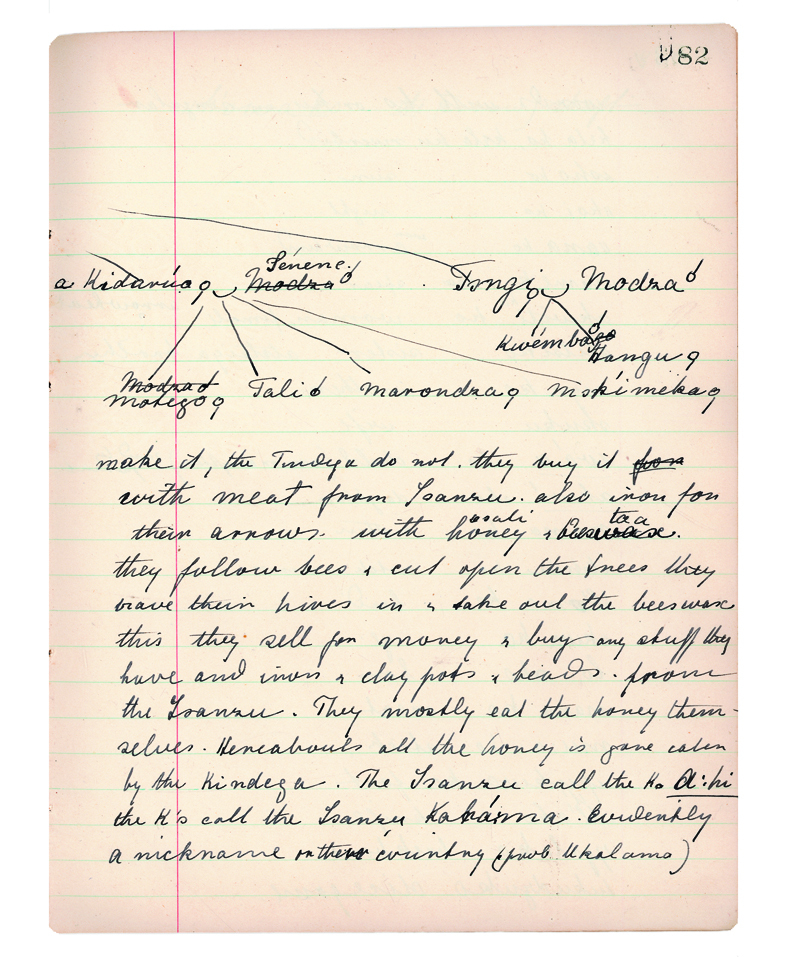 82
Sénene
a Kidarúa ♀ Modza ♂ Tsngi ♀ Modza ♂
Kwémba ♂
Hangu ♀
Módza ♂
motego ♀ Tali ♂ marondza ♀ mskimeka ♀
make it, the Tindega do not. they buy it for
with meat from Isanzu. also iron for
asali taa
their arrows. with honey & beeswax.
they follow bees & cut open the trees they
have their hives in & take out the beeswax
this they sell for money & buy any stuff they
have and iron & clay pots & beads. from
the Isanzu. They mostly eat the honey them-
selves. Hereabouts all the honey is gone eaten
by the Kindega. The Isanzu call the Ks a:ki
the K's call the Isanzu Kaháma. Evidently
a nickname or their country (prob Ukalama)